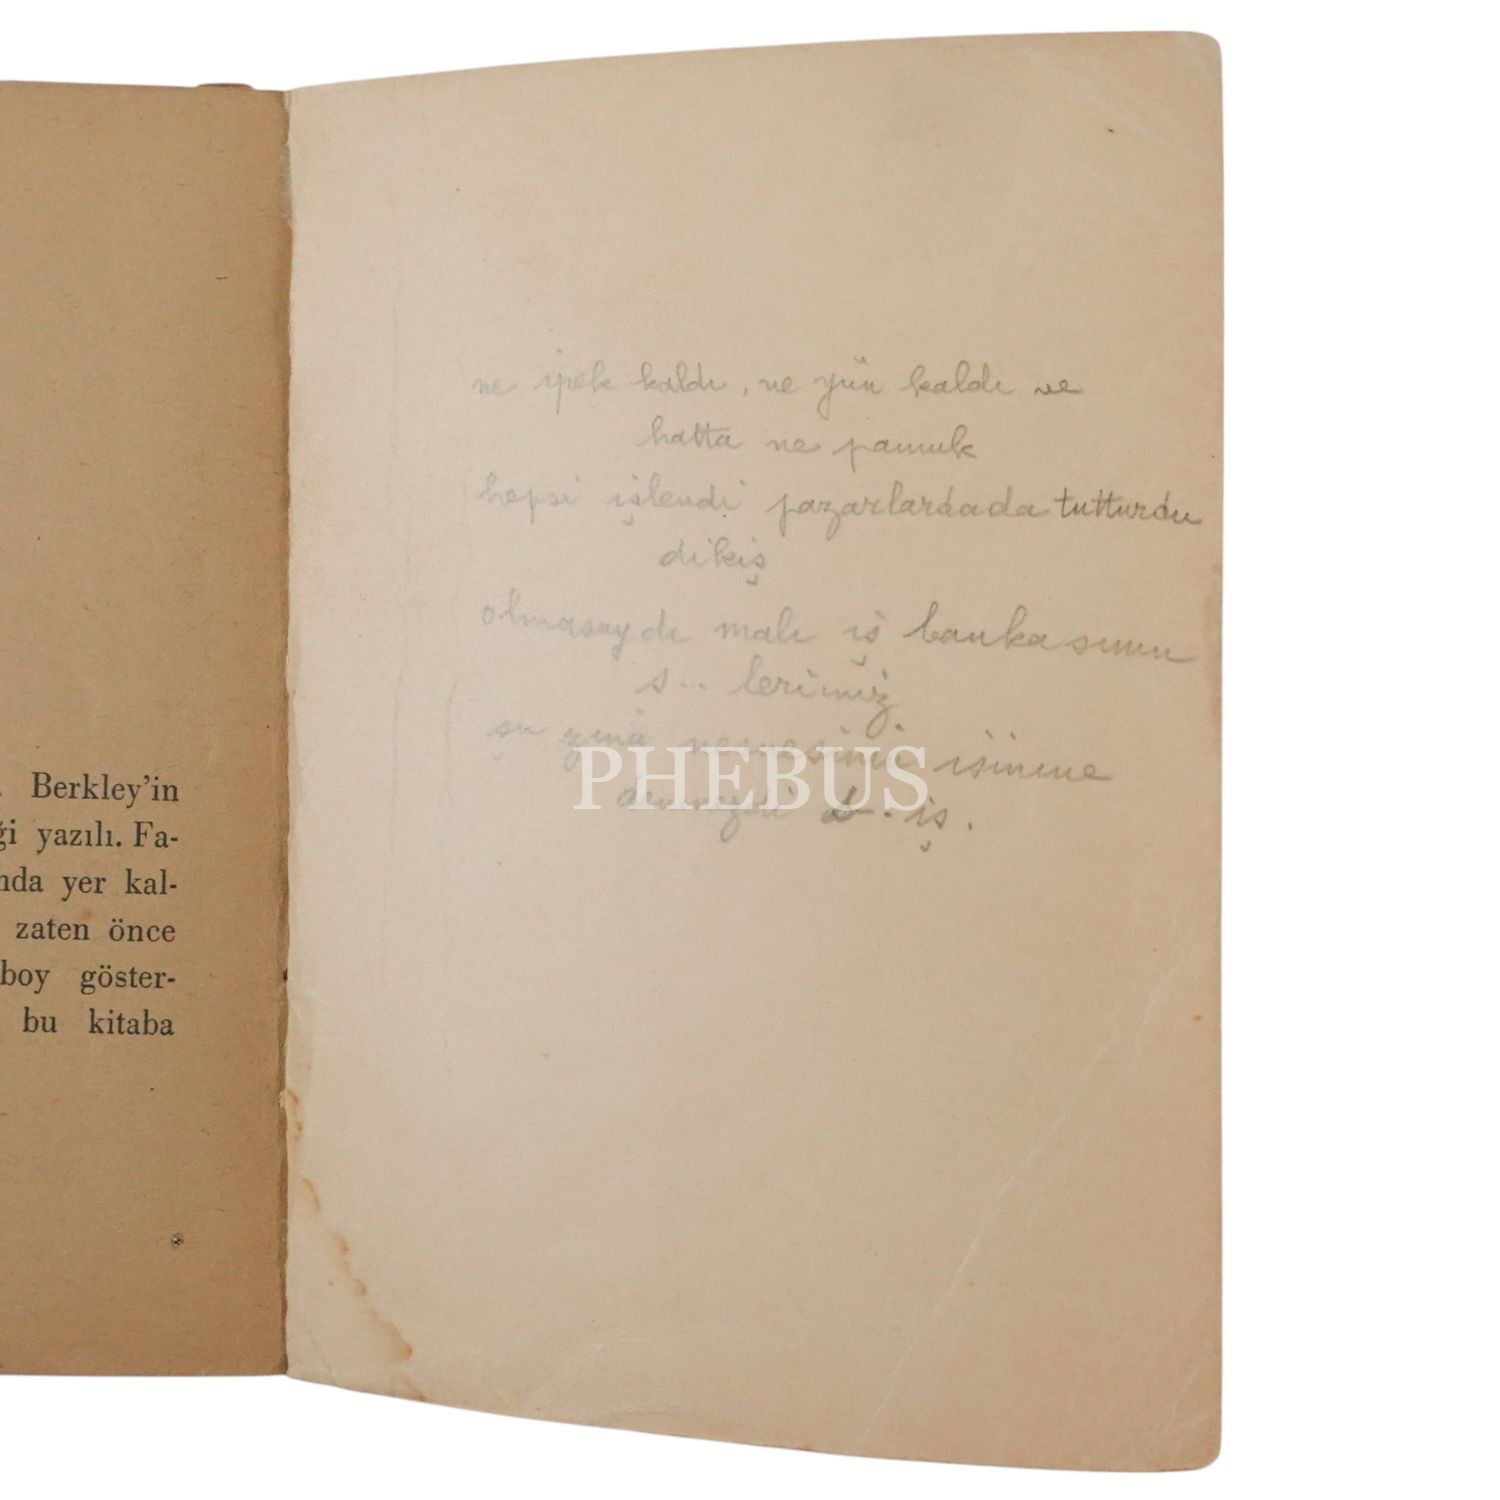 Berkley'in
yazılı. Fa-
yer kal-
zaten önce
boy göster-
bu kitaba
ne ipek kaldı, ne yün kaldı ve
hatta ne pamuk
hepsi işlendi pazarlardada tutturdu
dikiş
olmasaydı malı iş bankasının
s... lerimiz
şu
PHEBUS
iş.